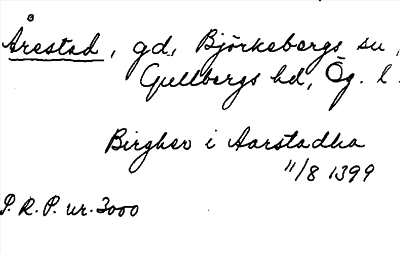 Årestad, gd, Björkebergs sn,
Gullbergs hd, Ög. l.
Birgher i Aarstadha
11/8 1399
P. R. P. nr. 3000